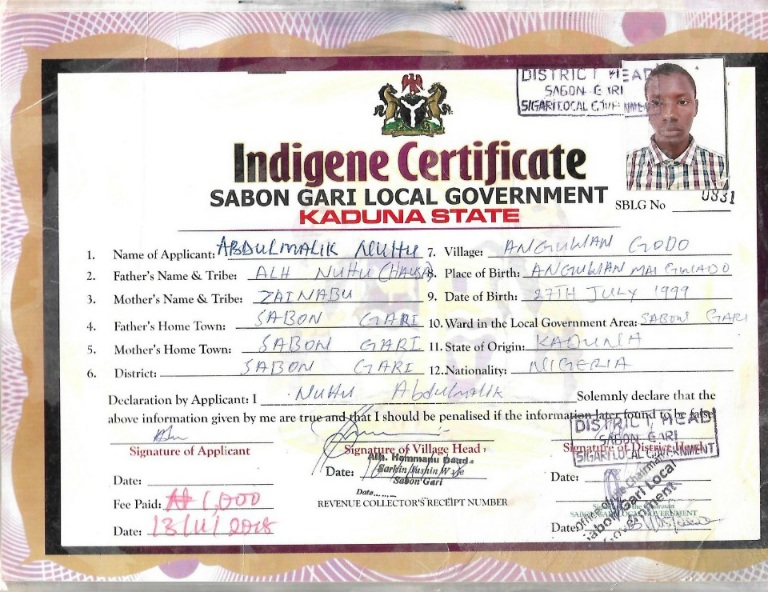 DISTRICT HEAD
SABON GARI
Indigene Certificate
SABON GARI LOCAL GOVERNMENT
KADUNA STATE
SBLG No 0831
1. Name of Applicant: ABDULMALIK NUHU 7. Village: ANGUWAN GODO
2. Father's Name & Tribe: ALH NUHU (HAUSA) 8. Place of Birth: ANGUWAN MAI GWADO
3. Mother's Name & Tribe: ZAINABU 9. Date of Birth: 27TH JULY 1999
4. Father's Home Town: SABON GARI 10. Ward in the Local Government Area: SABON GARI
5. Mother's Home Town: SABON GARI 11. State of Origin: KADUNA
6. District: SABON GARI 12. Nationality: NIGERIA
Declaration by Applicant: I NUHU Abdulmalik Solemnly declare that the
above information given by me are true and that I should be penalised if the information later found to be false
DISTRICT HEAD
SABON GARI
Signature of Applicant Signature of Village Head Signature of District Head
Alh. Hommanu Dauda
Sabon Gari
Date: Date: Date:
Date....
Fee Paid: ₦ 1,000 REVENUE COLLECTOR'S RECEIPT NUMBER
Chairman
Sabon Gari Local
Government
Date: 13/11/2018 Date: